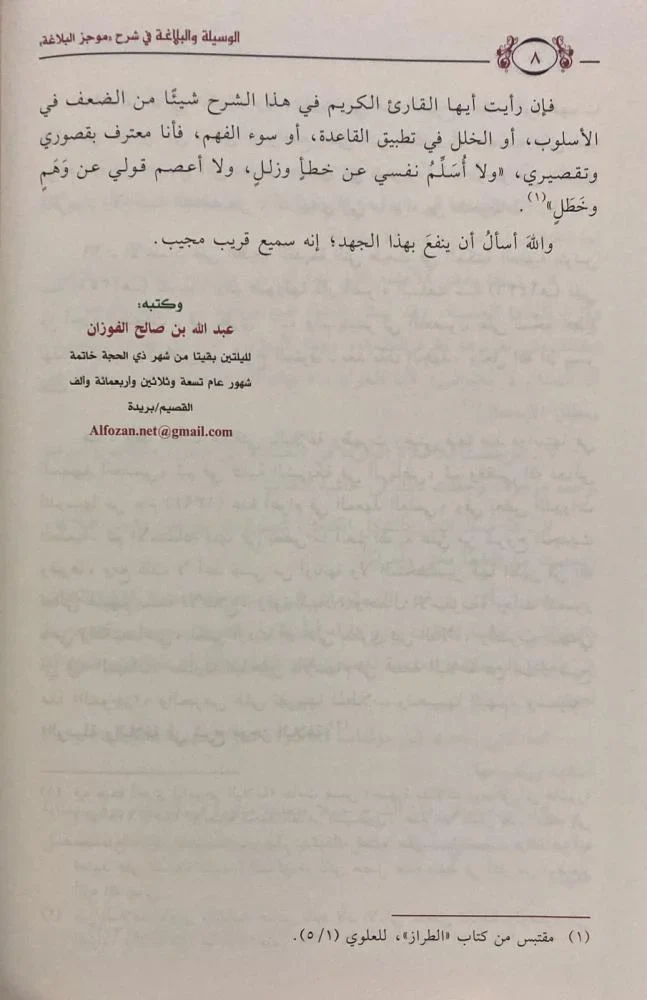 ٨
الوسيلة والبلاغة في شرح «موجز البلاغة»
فإن رأيت أيها القارئ الكريم في هذا الشرح شيئًا من الضعف في
الأسلوب، أو الخلل في تطبيق القاعدة، أو سوء الفهم، فأنا معترف بقصوري
وتقصيري، «ولا أُسَلِّمُ نفسي عن خطأٍ وزللٍ، ولا أعصم قولي عن وَهَمٍ
وخَطَلٍ»(١).
واللهَ أسألُ أن ينفعَ بهذا الجهد؛ إنه سميع قريب مجيب.
وكتبه:
عبد الله بن صالح الفوزان
لليلتين بقيتا من شهر ذي الحجة خاتمة
شهور عام تسعة وثلاثين وأربعمائة وألف
القصيم/بريدة
Alfozan.net@gmail.com
(١) مقتبس من كتاب «الطراز»، للعلوي (٥/١).